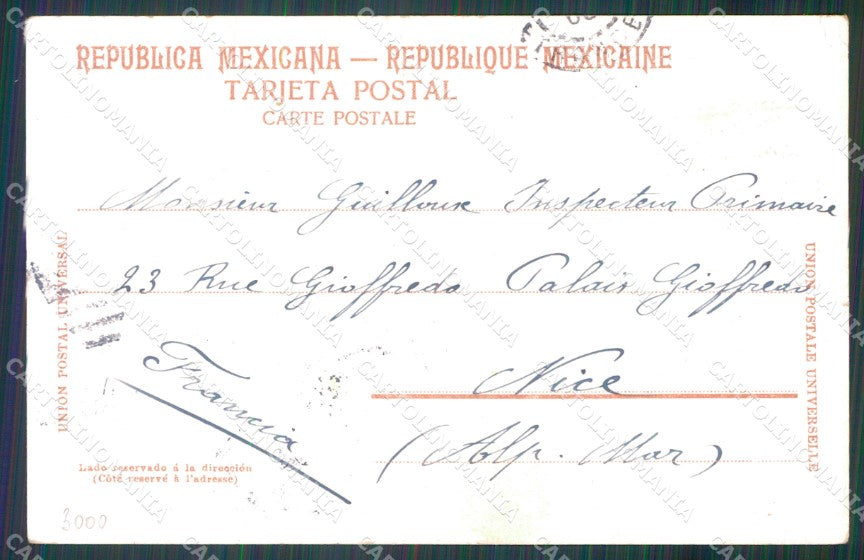 REPUBLICA MEXICANA — REPUBLIQUE MEXICAINE
TARJETA POSTAL
CARTE POSTALE
Monsieur Guilloux Inspecteur Primaire
23 Rue Gioffredo Palais Gioffredo
Nice
(Alp. Mar)
Francia
UNION POSTAL UNIVERSAL
UNION POSTALE UNIVERSELLE
Lado reservado á la dirección
(Côté reservé à l'adresse)
3000
CARTOLINOMANIA